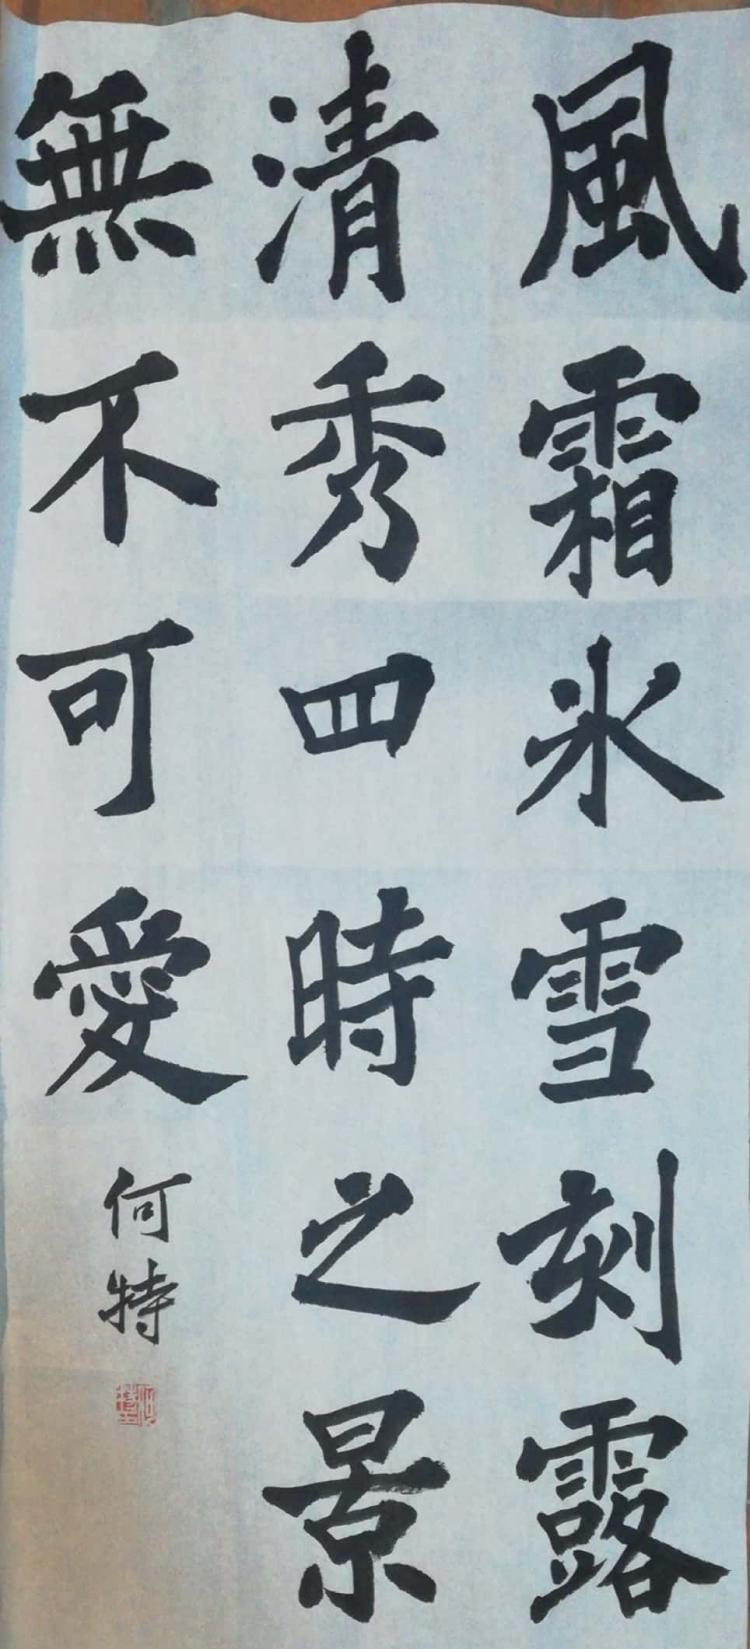 風霜氷雪刻露
清秀四時之景
無不可愛
何特